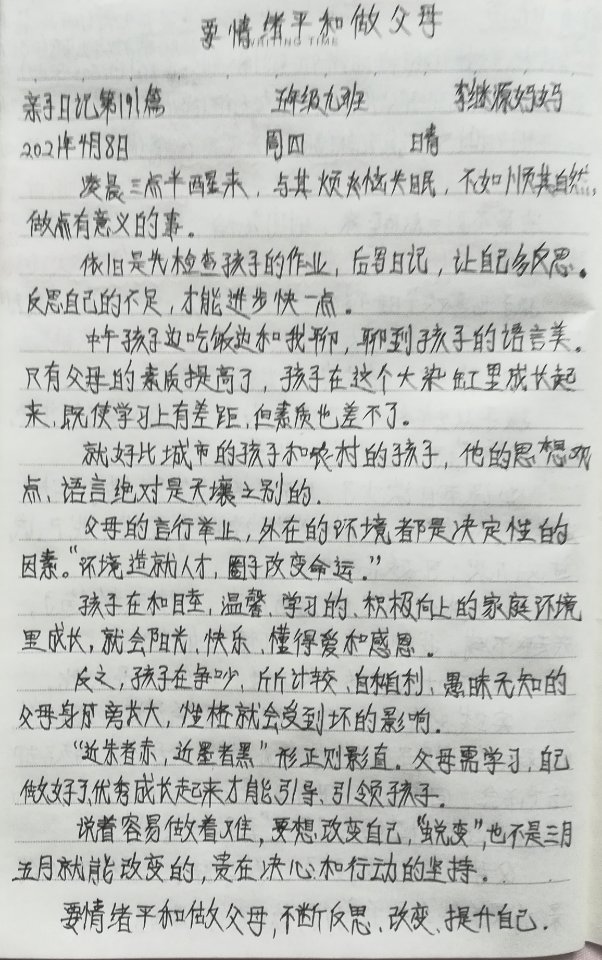 要情绪平和做父母
WRITING TIME
亲子日记第191篇 五年级九班 李继源妈妈
2021年4月8日 周四 晴
凌晨三点半醒来，与其烦恼失眠，不如顺其自然，
做点有意义的事。
依旧是先检查孩子的作业，后写日记，让自己多反思。
反思自己的不足，才能进步快一点。
中午孩子边吃饭边和我聊，聊到孩子的语言美。
只有父母的素质提高了，孩子在这个大染缸里成长起
来、既使学习上有差距，但素质也差不了。
就好比城市的孩子和农村的孩子，他的思想观
点、语言绝对是天壤之别的.
父母的言行举止，外在的环境都是决定性的
因素。“环境造就人才，圈子改变命运。”
孩子在和睦、温馨、学习的、积极向上的家庭环境
里成长，就会阳光、快乐、懂得爱和感恩。
反之，孩子在争吵、斤斤计较、自私自利、愚昧无知的
父母身旁长大，性格就会受到坏的影响。
“近朱者赤，近墨者黑”形正则影直。父母需学习，自己
做好了，优秀成长起来才能引导、引领孩子。
说着容易做着难，要想改变自己，“蜕变”，也不是三月
五月就能改变的，贵在决心和行动的坚持。
要情绪平和做父母，不断反思、改变、提升自己.